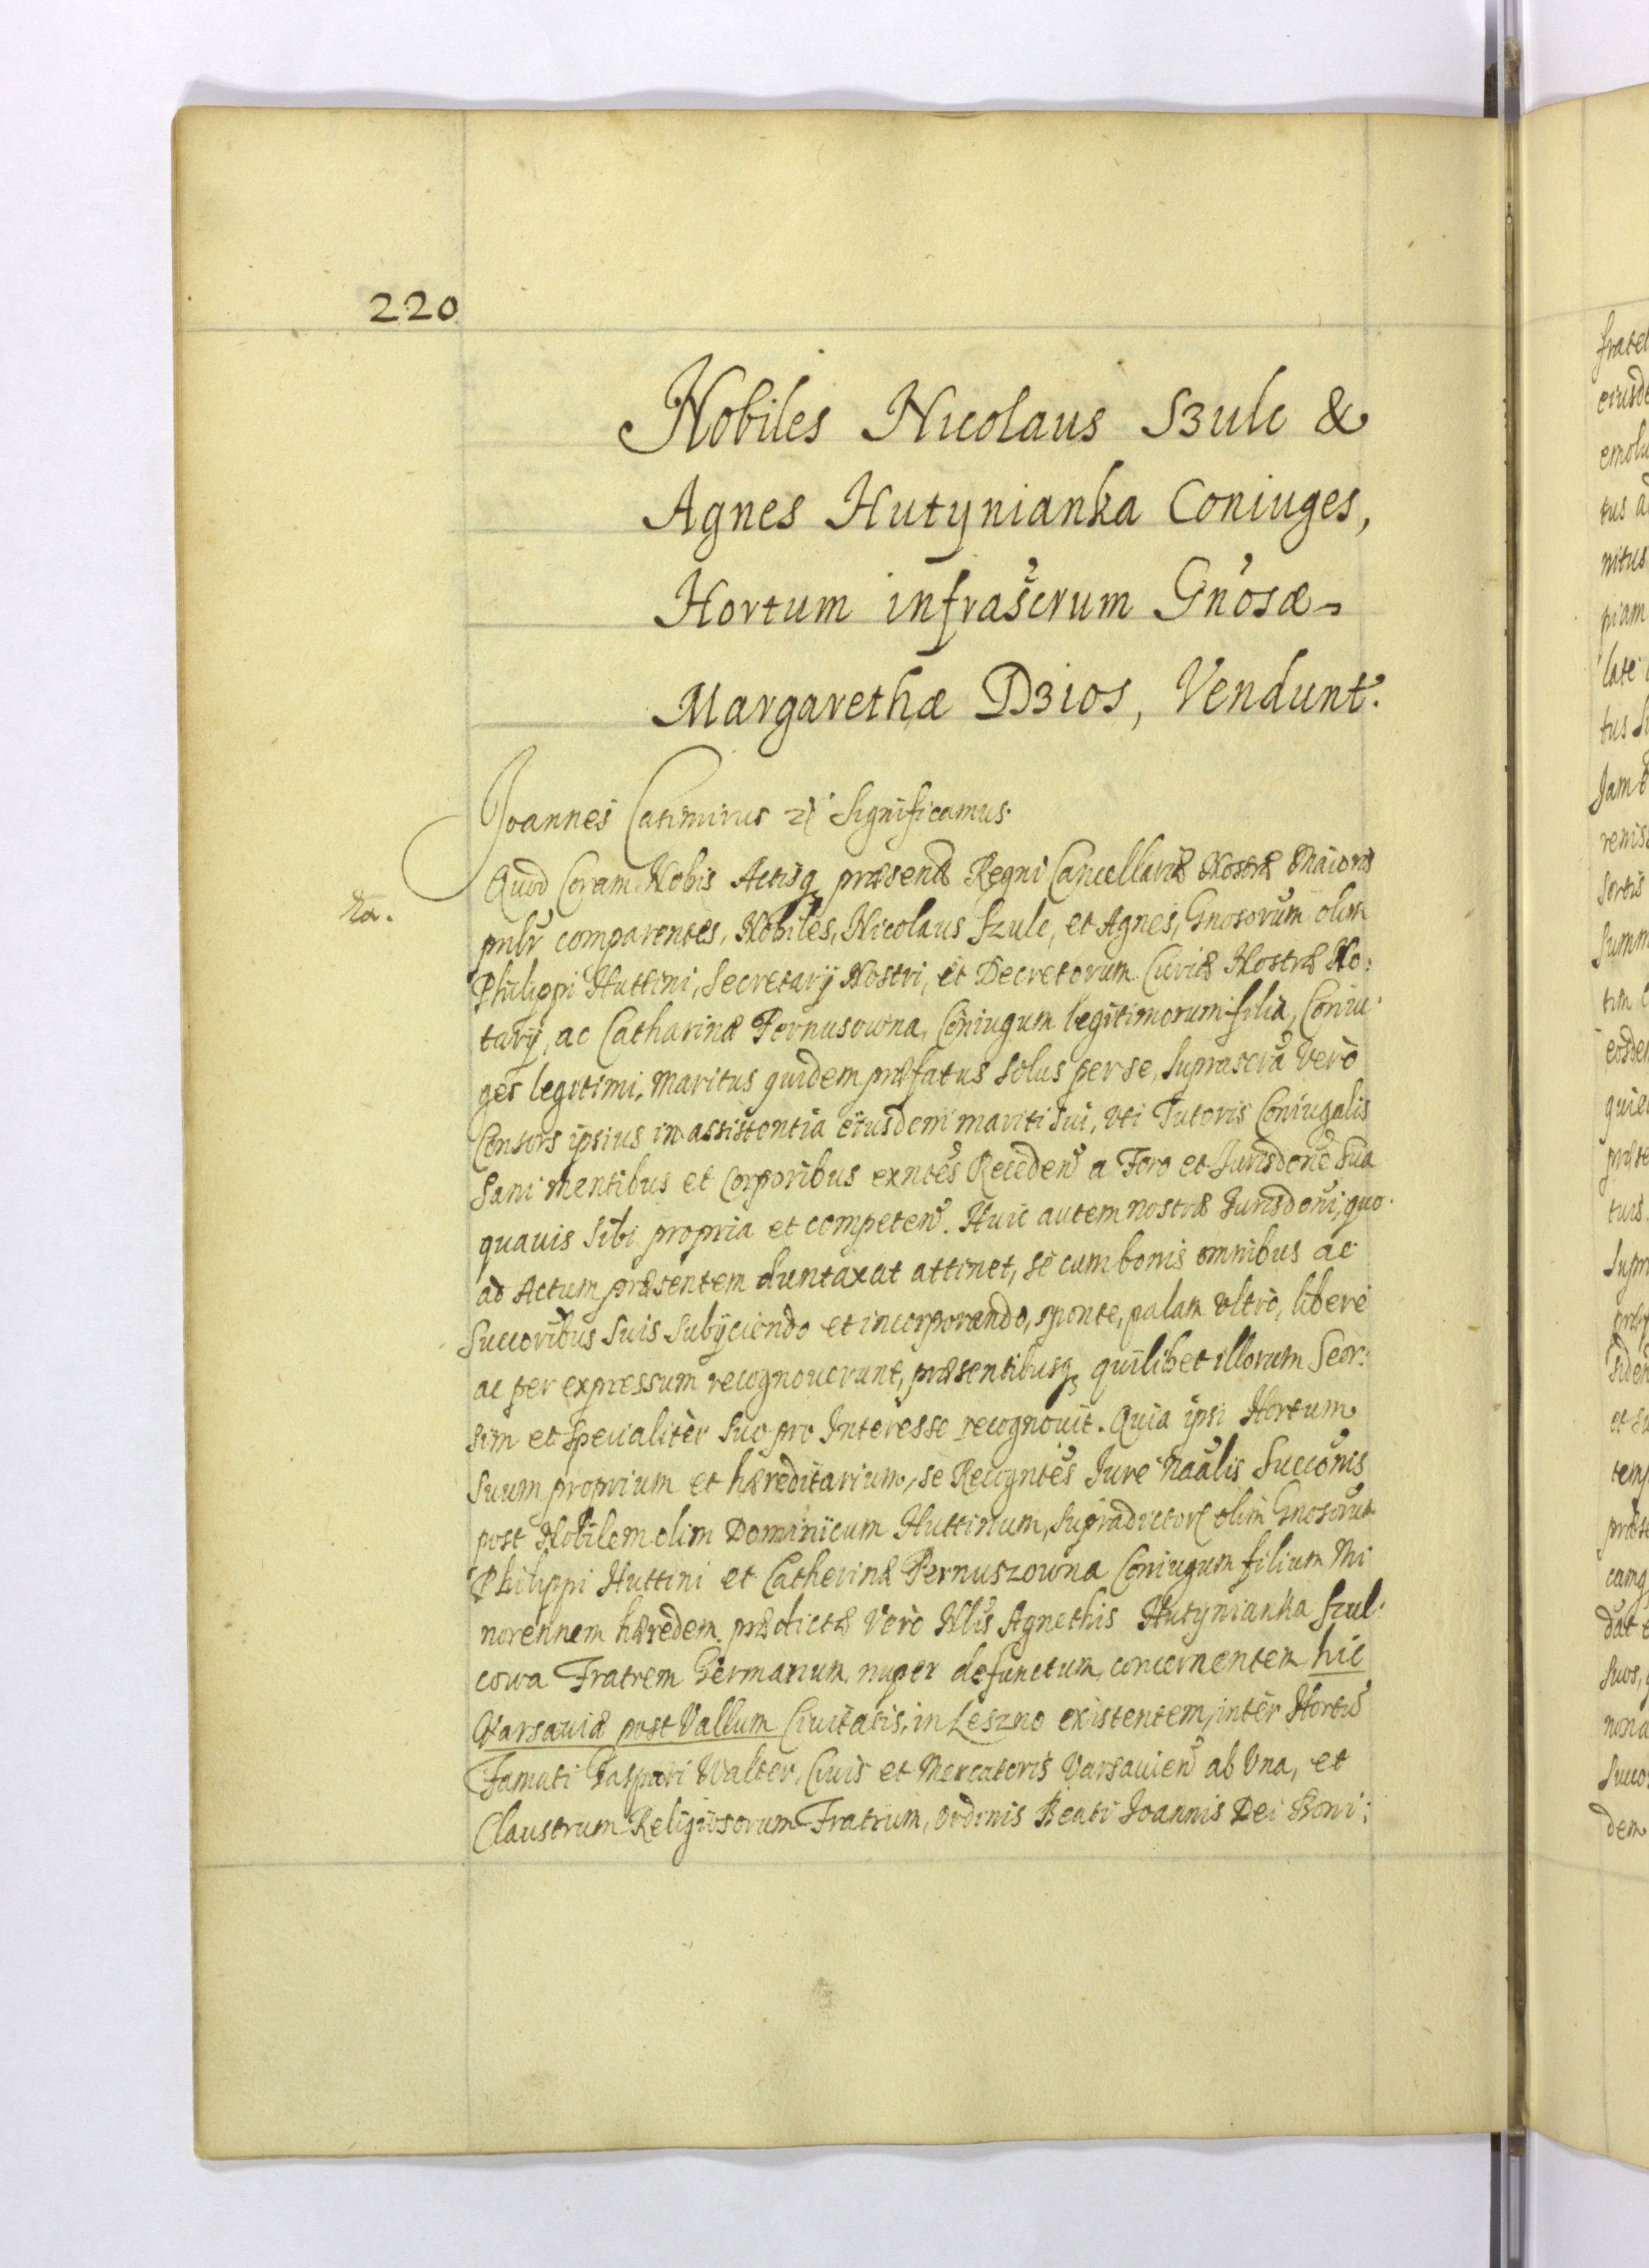 220
Nobiles Nicolaus Szulc &
Agnes Hutynianka Coniuges,
Hortum infrascrum Gnosæ
Margarethæ Dzios, Vendunt.
Joannes Casimirus Significamus.
Quod Coram Nobis Actisq præsent Regni Cancellariæ Nostræ Maioris
pnlr comparentes, Nobiles, Nicolaus Szulc, et Agnes, Gnosorum olim
Philippi Huttini, Secretarij Nostri, et Decretorum Curiæ Nostræ No:
tarij, ac Catharinæ Pernusowna, Coniugum legitimorum filia, Coniu:
ges legitimi, maritus quidem præfatus solus per se, suprascra vero
Consors ipsius in assistentia eiusdem mariti sui, uti Tutoris Coniugalis
Sani mentibus et Corporibus exntes Receden a Foro et Jurisdone Sua
quavis sibi propria et competen. Huic autem nostræ Jurisdoni, quo
ad Actum præsentem duntaxat attinet, se cum bonis omnibus ac
Succoribus Suis Subijciendo et incorporando, sponte, palam ultro, libere
ac per expressum recognoverunt, præsentibusq quilibet illorum Seor:
sim et specialiter suo pro Interesse recognovit. Quia ipsi Hortum
Suum proprium et hæreditarium, se Recogntes Jure Naalis Succonis
post Nobilem olim Dominicum Huttinum, supradictor olim Gnosorum
Philippi Huttini et Catherinæ Pernuszowna Coniugum filium Mi
norennem hæredem, prædictæ vero Nlis Agnethis Hutynianka Szul:
cowa Fratrem Germanum nuper defunctum concernentem hic
Varsaviæ post Vallum Civitatis, in Leszno existentem, inter Hortu
Famati Gaspari Walter, Civis et Mercatoris Varsavien ab Una, et
Claustrum Religiosorum Fratrum, Ordinis Beati Joannis Dei Boni: